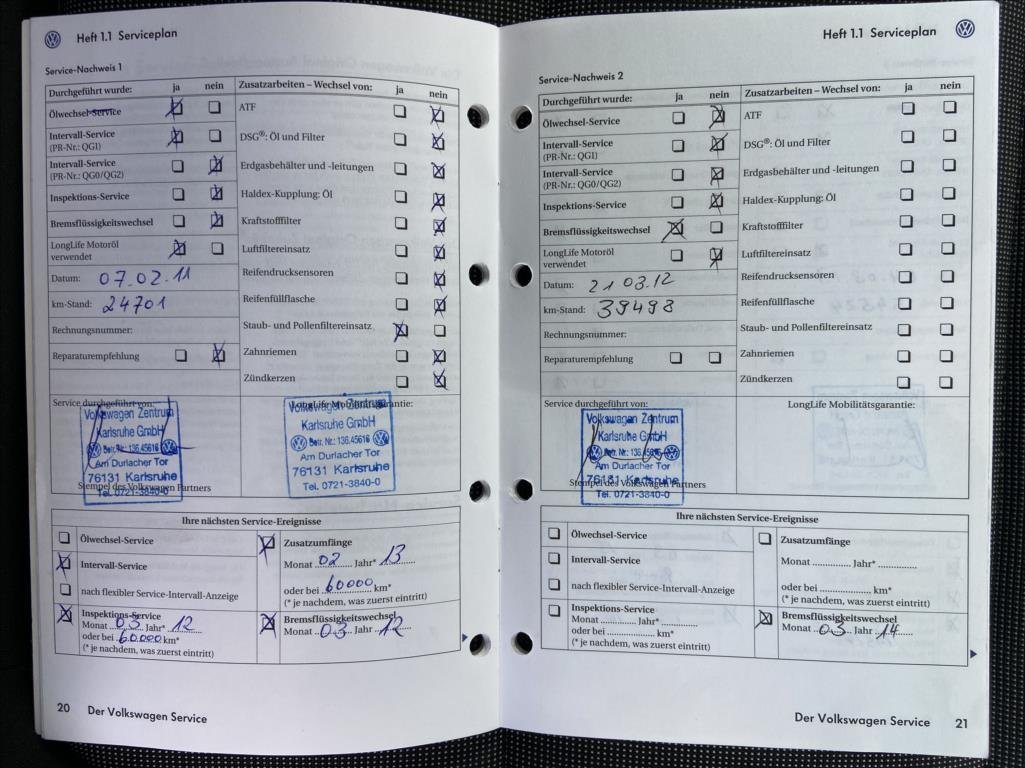 Heft 1.1 Serviceplan
Service-Nachweis 1
Durchgeführt wurde: ja nein
Ölwechsel-Service
Intervall-Service
(PR-Nr.: QG1)
Intervall-Service
(PR-Nr.: QG0/QG2)
Inspektions-Service
Bremsflüssigkeitswechsel
LongLife Motoröl
verwendet
Datum: 07.02.11
km-Stand: 24701
Rechnungsnummer:
Reparaturempfehlung
Zusatzarbeiten – Wechsel von: ja nein
ATF
DSG®: Öl und Filter
Erdgasbehälter und -leitungen
Haldex-Kupplung: Öl
Kraftstofffilter
Luftfiltereinsatz
Reifendrucksensoren
Reifenfüllflasche
Staub- und Pollenfiltereinsatz
Zahnriemen
Zündkerzen
Service durchgeführt von:
Volkswagen Zentrum
Karlsruhe GmbH
Betr. Nr.: 136.45616
Am Durlacher Tor
76131 Karlsruhe
Tel. 0721-3840-0
Stempel des Volkswagen Partners
LongLife Mobilitätsgarantie:
Volkswagen Zentrum
Karlsruhe GmbH
Betr. Nr.: 136.45616
Am Durlacher Tor
76131 Karlsruhe
Tel. 0721-3840-0
Ihre nächsten Service-Ereignisse
Ölwechsel-Service
Intervall-Service
nach flexibler Service-Intervall-Anzeige
Inspektions-Service
Monat 03 Jahr* 12
oder bei 60000 km*
(* je nachdem, was zuerst eintritt)
Zusatzumfänge
Monat 02 Jahr* 13
oder bei 60000 km*
(* je nachdem, was zuerst eintritt)
Bremsflüssigkeitswechsel
Monat 03 Jahr 12
20 Der Volkswagen Service
Heft 1.1 Serviceplan
Service-Nachweis 2
Durchgeführt wurde: ja nein
Ölwechsel-Service
Intervall-Service
(PR-Nr.: QG1)
Intervall-Service
(PR-Nr.: QG0/QG2)
Inspektions-Service
Bremsflüssigkeitswechsel
LongLife Motoröl
verwendet
Datum: 21 03.12
km-Stand: 39498
Rechnungsnummer:
Reparaturempfehlung
Zusatzarbeiten – Wechsel von: ja nein
ATF
DSG®: Öl und Filter
Erdgasbehälter und -leitungen
Haldex-Kupplung: Öl
Kraftstofffilter
Luftfiltereinsatz
Reifendrucksensoren
Reifenfüllflasche
Staub- und Pollenfiltereinsatz
Zahnriemen
Zündkerzen
Service durchgeführt von:
Volkswagen Zentrum
Karlsruhe GmbH
Betr. Nr.: 136.45616
Am Durlacher Tor
76131 Karlsruhe
Tel. 0721-3840-0
Stempel des Volkswagen Partners
LongLife Mobilitätsgarantie:
Ihre nächsten Service-Ereignisse
Ölwechsel-Service
Intervall-Service
nach flexibler Service-Intervall-Anzeige
Inspektions-Service
Monat ............ Jahr* ............
oder bei ............ km*
(* je nachdem, was zuerst eintritt)
Zusatzumfänge
Monat ............ Jahr* ............
oder bei ............ km*
(* je nachdem, was zuerst eintritt)
Bremsflüssigkeitswechsel
Monat 03 Jahr 14
Der Volkswagen Service 21